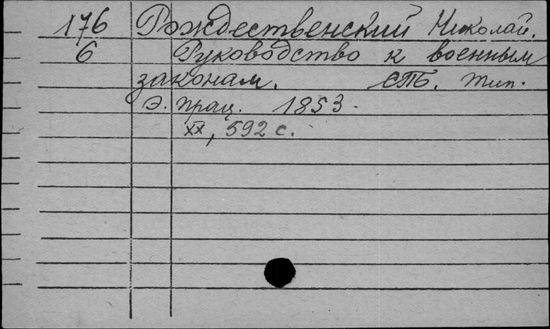 176 Рождественский Николай.
6 Руководство к военным
законам. СПб. Тип.
Э. Прац. 1853.
XX, 592 с.